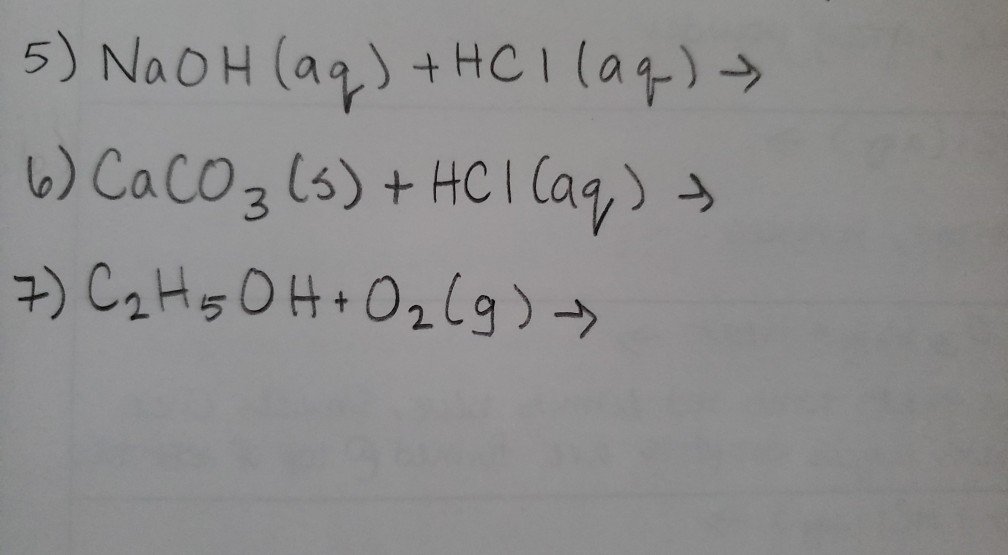 5) NaOH (aq) + HCl (aq) →
6) CaCO₃ (s) + HCl (aq) →
7) C₂H₅OH + O₂ (g) →